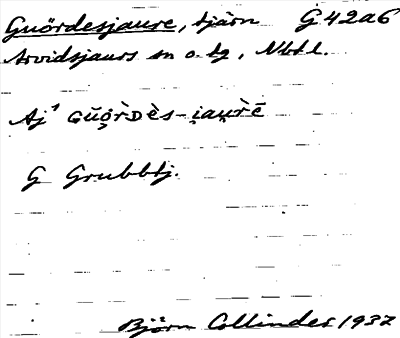 Guördesjaure, tjärn G 42a6
Arvidsjaurs sn o. tg, Nbtl.
Aj¹ Gŭo̭rDès-i̯au̯rē
G Grubbtj.
Björn Collinder 1937